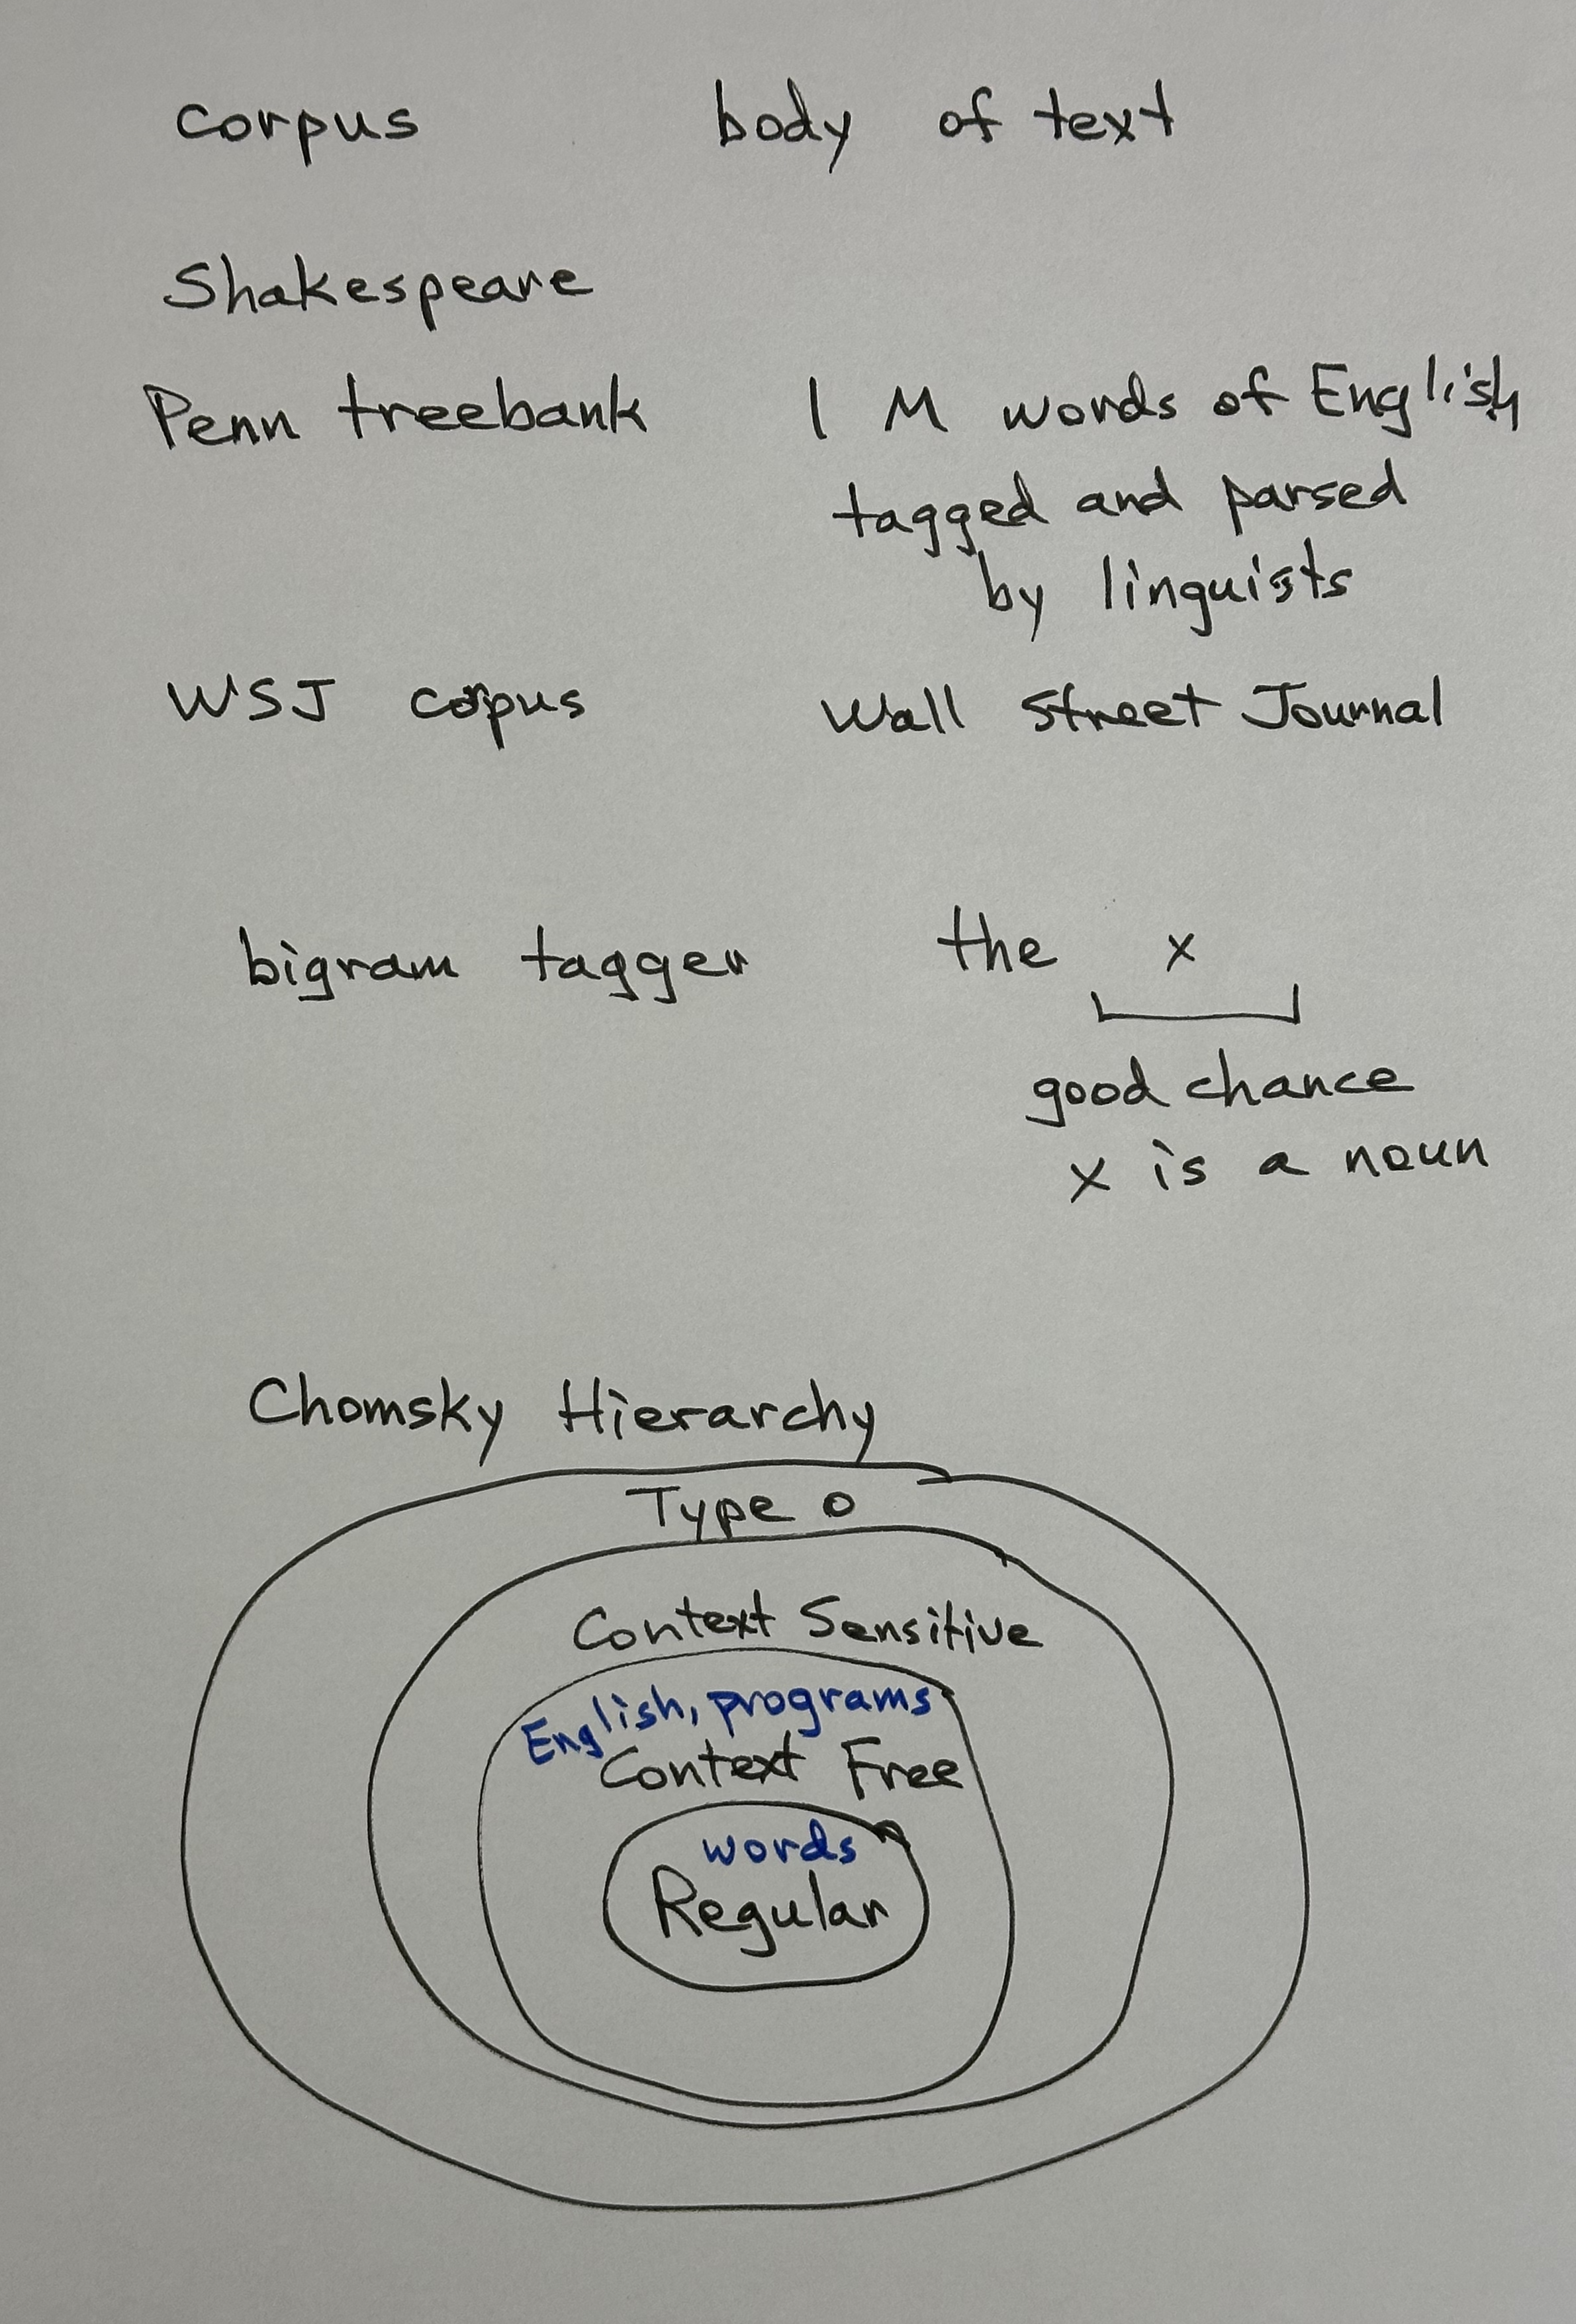 corpus body of text
Shakespeare
Penn treebank 1 M words of English
tagged and parsed
by linguists
WSJ corpus Wall Street Journal
bigram tagger the x
good chance
x is a noun
Chomsky Hierarchy
Type 0
Context Sensitive
English, programs
Context Free
words
Regular